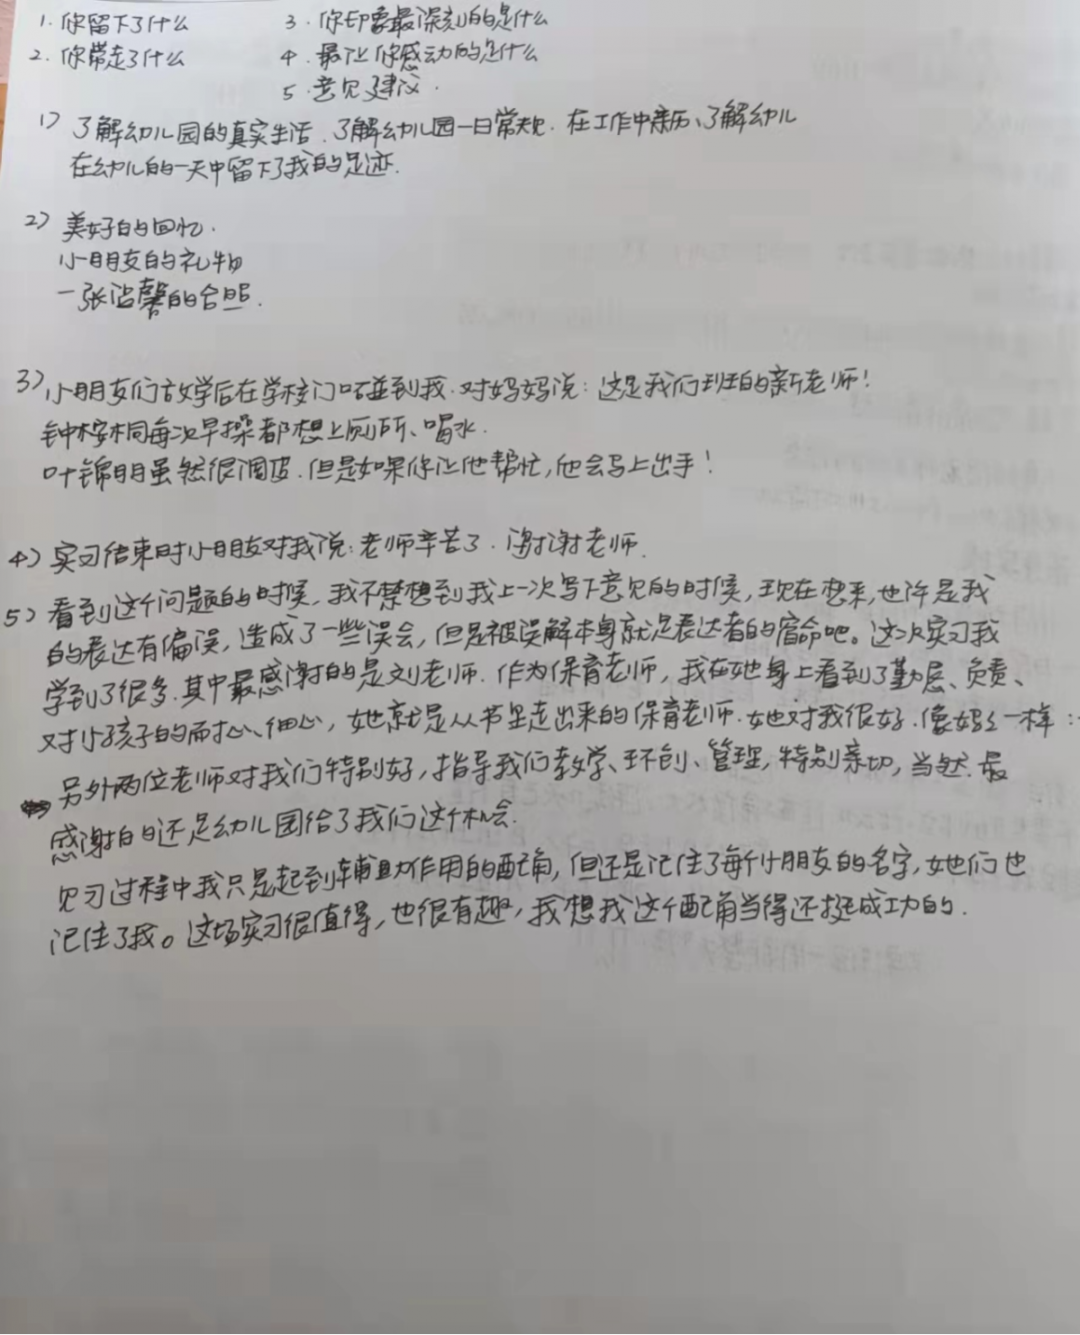 1. 你留下了什么 3. 你印象最深刻的是什么
2. 你带走了什么 4. 最让你感动的是什么
5. 意见建议.
1) 了解幼儿园的真实生活. 了解幼儿园一日常规. 在工作中亲历、了解幼儿
在幼儿的一天中留下了我的足迹.
2) 美好的回忆.
小朋友的礼物
一张温馨的合照.
3) 小朋友们放学后在学校门口碰到我. 对妈妈说: 这是我们班的新老师!
钟梓桐每次早操都想上厕所、喝水.
叶锦明虽然很调皮. 但是如果你让他帮忙, 他会马上出手!
4) 实习结束时小朋友对我说: 老师辛苦了. 谢谢老师.
5) 看到这个问题的时候, 我不禁想到我上一次写下意见的时候, 现在想来, 也许是我
的表达有偏误, 造成了一些误会, 但是被误解本身就是表达者的宿命吧。这次实习我
学到了很多. 其中最感谢的是刘老师. 作为保育老师, 我在她身上看到了勤恳、负责、
对小孩子的耐心、细心, 她就是从书里走出来的保育老师. 她对我很好. 像妈妈一样:
另外两位老师对我们特别好, 指导我们教学、环创、管理, 特别亲切, 当然. 最
感谢的还是幼儿园给了我们这个机会.
见习过程中我只是起到辅助作用的配角, 但还是记住了每个小朋友的名字, 她们也
记住了我。这场实习很值得, 也很有趣, 我想我这个配角当得还挺成功的.